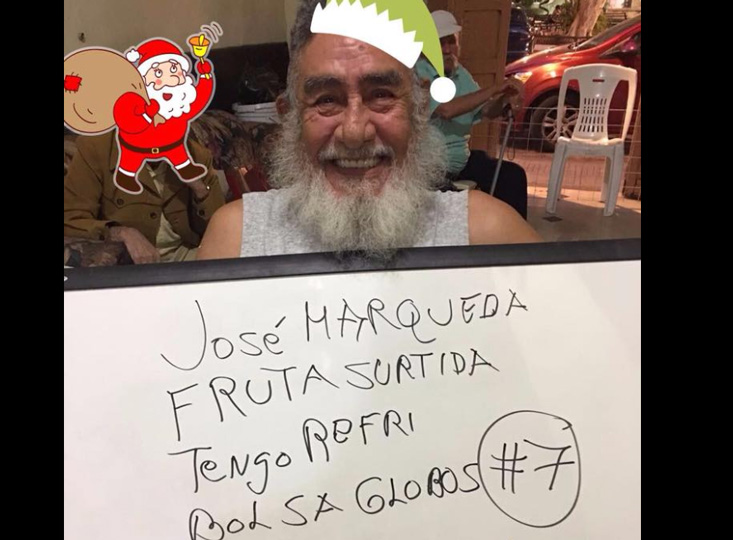 JOSÉ MARQUEDA
FRUTA SURTIDA
TENGO REFRI
BOLSA GLOBOS #7